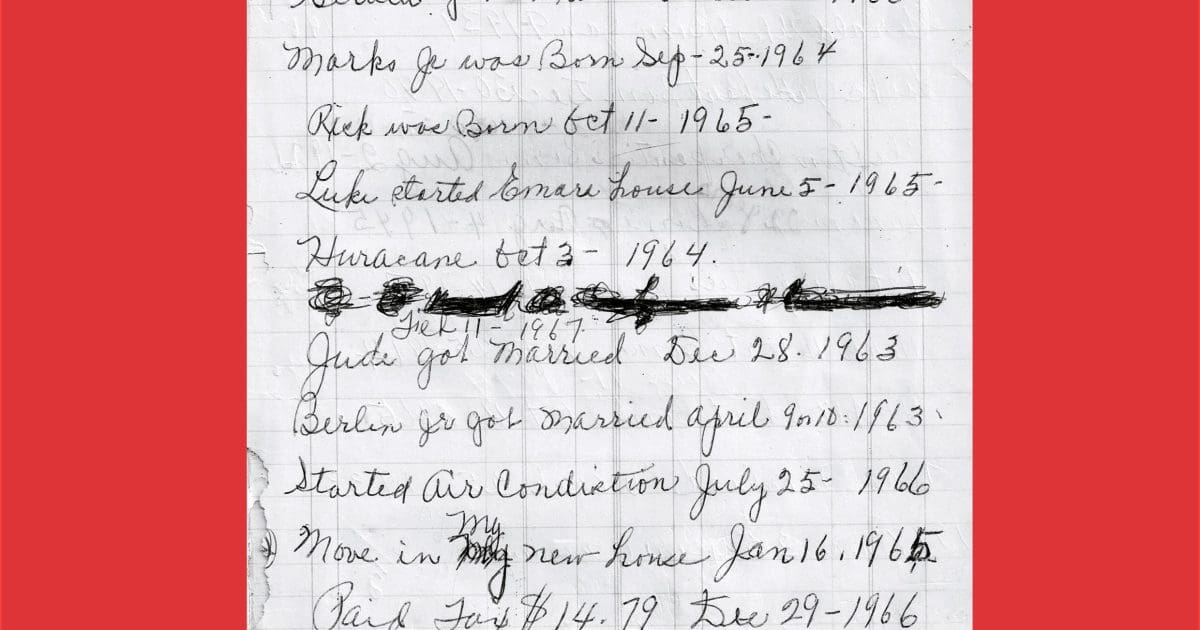 Marks Jr was Born Sep-25-1964
Rick was Born Oct 11- 1965-
Luke started Emars house June 5- 1965-
Huracane Oct 3- 1964.
11- 1967
Jude got Married Dec 28. 1963
Berlin Jr got Married april 9 or 10: 1963
Started Air Condiction July 25- 1966
My
Move in new house Jan 16. 1965
Paid Tax $14.79 Dec 29-1966